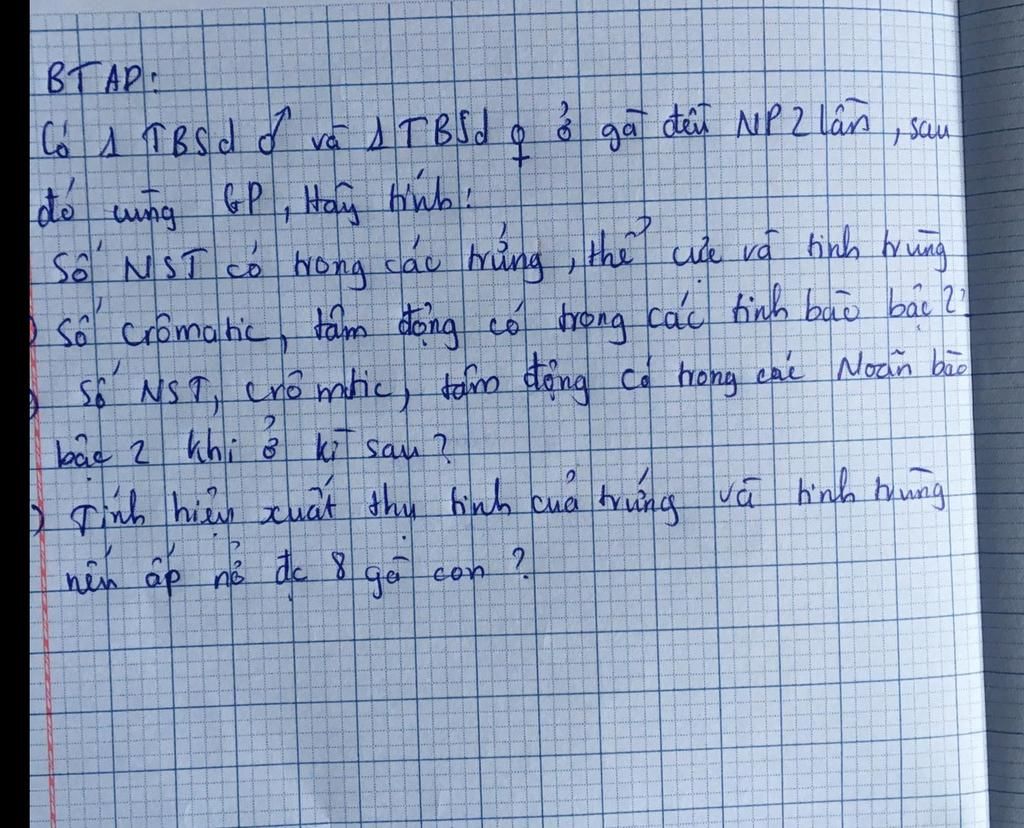 BTAD:
Có 1 TBSd ♂ và 1 TBSd ♀ ở gà đều NP 2 lần, sau
đó cùng GP, Hãy tính:
Số NST có trong các trứng, thể cực và tinh trùng
) Số crômatic, tâm động có trong các tinh bào bậc 2?
) Số NST, crômtic, tâm động có trong các Noãn bào
bậc 2 khi ở kì sau?
) Tính hiệu xuất thụ tinh của trứng và tinh trùng
nếu ấp nở đc 8 gà con?